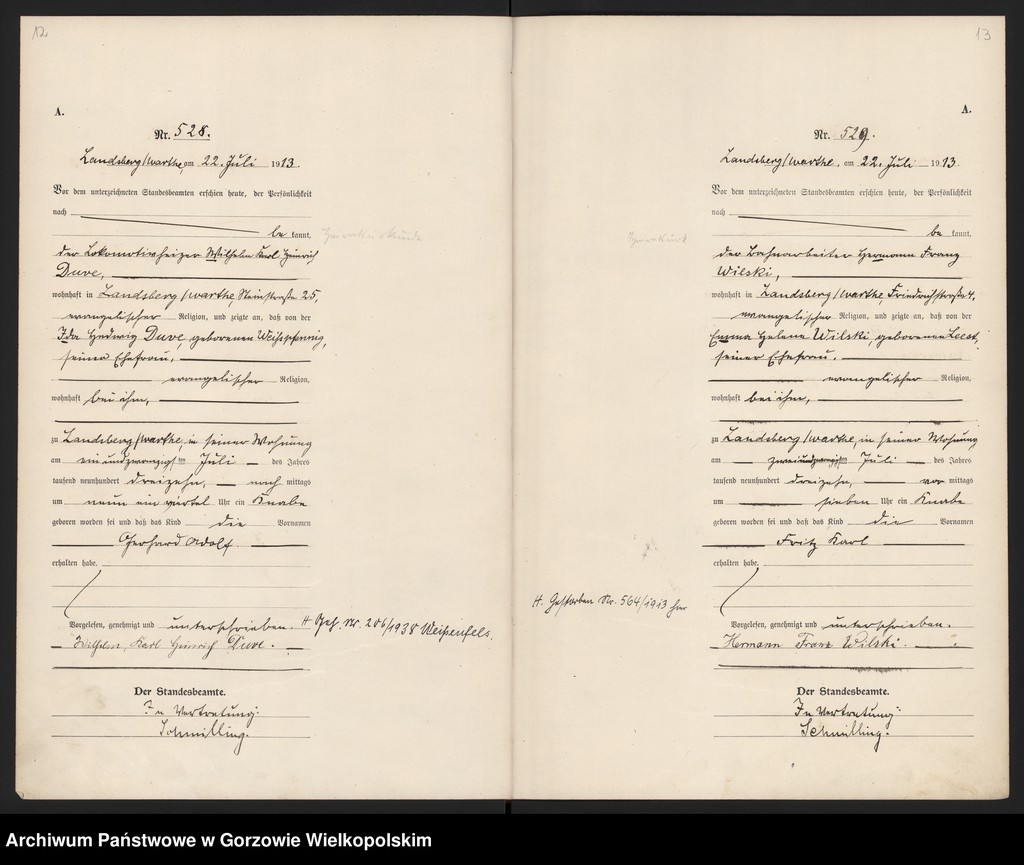 12
A.
Nr. 528.
Landsberg/Warthe, am 22. Juli 1913.
Vor dem unterzeichneten Standesbeamten erschien heute, der Persönlichkeit
nach
bekannt,
der Lokomotivheizer Wilhelm Karl Heinrich
Duve,
wohnhaft in Landsberg/Warthe, Steinstraße 25,
evangelischer Religion, und zeigte an, daß von der
Ida Hedwig Duve, geborenen Weihpfennig,
seiner Ehefrau,
evangelischer Religion,
wohnhaft bei ihm,
zu Landsberg/Warthe, in seiner Wohnung
am einundzwanzigsten Juli des Jahres
tausend neunhundert dreizehn, nachmittags
um neun ein viertel Uhr ein Knabe
geboren worden sei und daß das Kind die Vornamen
Gerhard Adolf
erhalten habe.
Vorgelesen, genehmigt und unterschrieben.
Wilhelm, Karl Heinrich Duve.
H Geh. Nr. 206/1938 Weißenfels.
Der Standesbeamte.
In Vertretung:
Schmilling.
13
A.
Nr. 529.
Landsberg/Warthe, am 22. Juli 1913.
Vor dem unterzeichneten Standesbeamten erschien heute, der Persönlichkeit
nach
bekannt,
der Bahnarbeiter Hermann Franz
Wilski,
wohnhaft in Landsberg/Warthe, Friedrichstraße 4,
evangelischer Religion, und zeigte an, daß von der
Emma Helene Wilski, geborenen Leest,
seiner Ehefrau,
evangelischer Religion,
wohnhaft bei ihm,
zu Landsberg/Warthe, in seiner Wohnung
am zweiundzwanzigsten Juli des Jahres
tausend neunhundert dreizehn, vormittags
um sieben Uhr ein Knabe
geboren worden sei und daß das Kind die Vornamen
Fritz Karl
erhalten habe.
H. Gestorben Nr. 564/1913 hier
Vorgelesen, genehmigt und unterschrieben.
Hermann Franz Wilski.
Der Standesbeamte.
In Vertretung:
Schmilling.
Archiwum Państwowe w Gorzowie Wielkopolskim